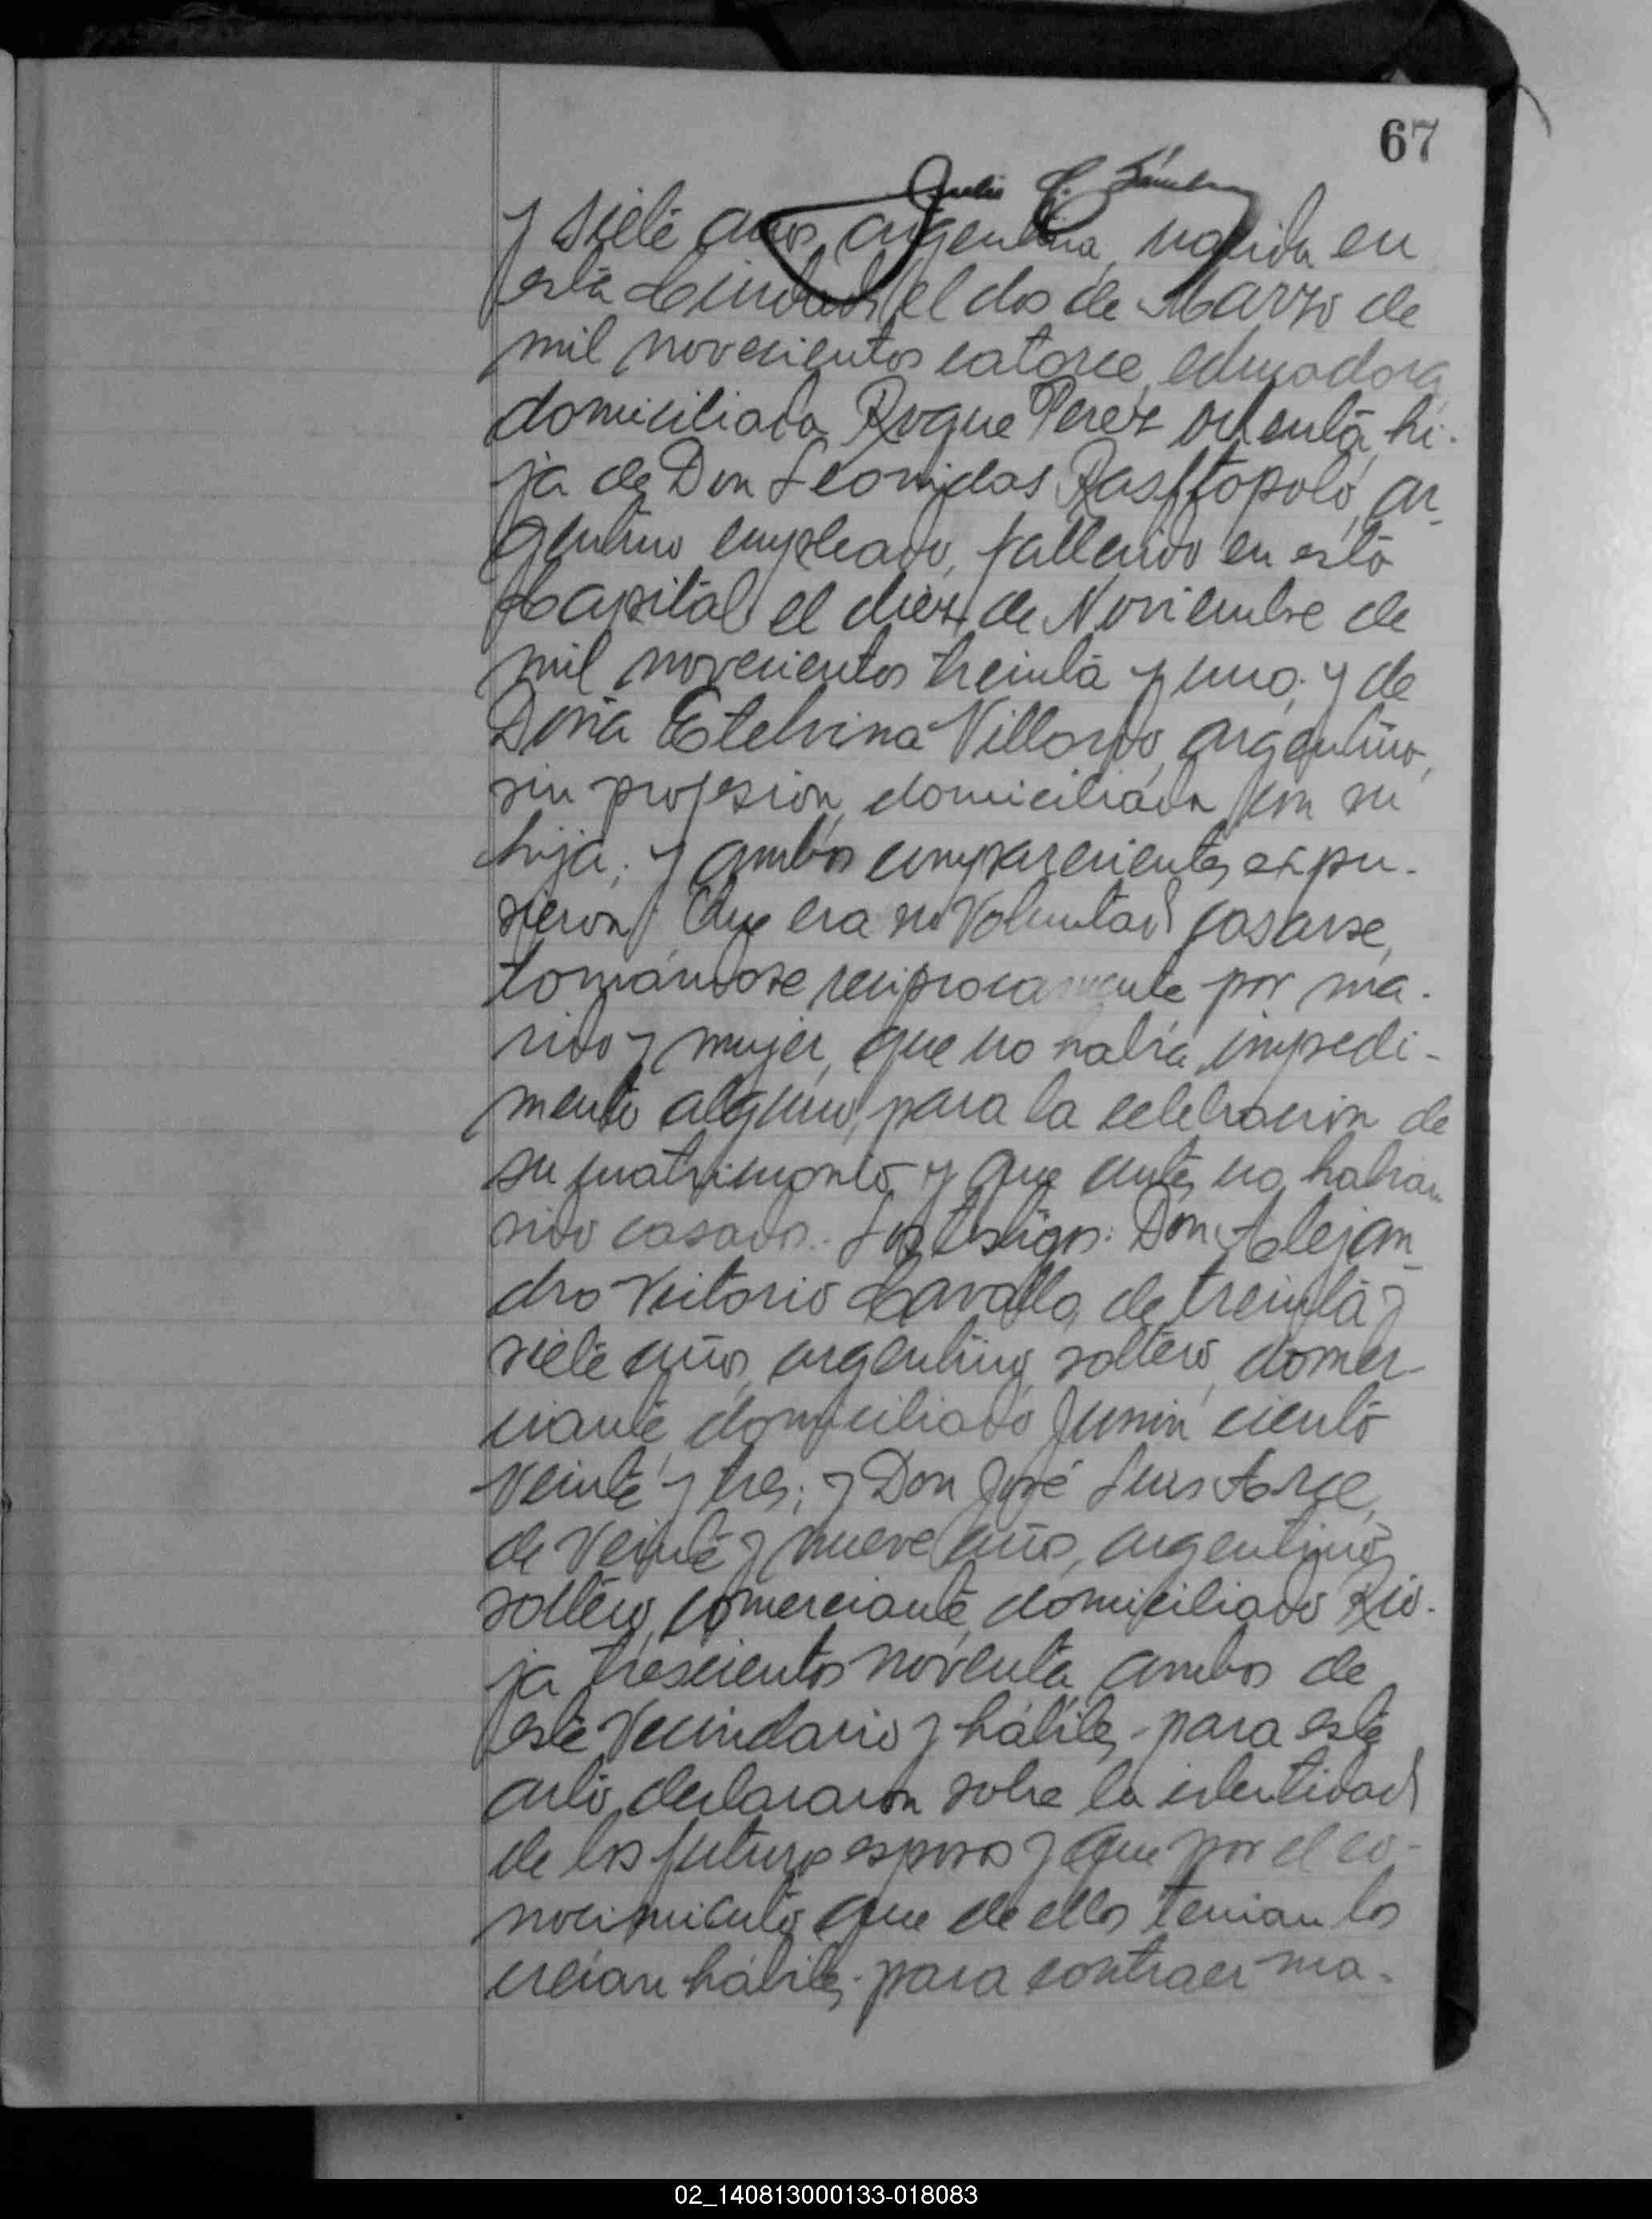 67
Julio C.
y siete años, argentina, nacida en
esta Ciudad el dos de Marzo de
mil novecientos catorce, educadora,
domiciliada Roque Perez ochenta, hi-
ja de Don Leonidas Rasftopolo, ar-
gentino empleado, fallecido en esta
Capital el diez de Noviembre de
mil novecientos treinta y uno; y de
Doña Etelvina Villordo, argentina,
sin profesion, domiciliada con su
hija; y ambos comparecientes expu-
sieron: Que era su Voluntad casarse,
tomándose reciprocamente por ma-
rido y mujer, que no había impedi-
mento alguno, para la celebracion de
su matrimonio y que antes no habian
sido casados. Los testigos: Don Alejan-
dro Victorio Cavallo, de treinta y
siete años, argentino, soltero, comer-
ciante, domiciliado Junin ciento
veinte y tres; y Don José Luis Arce,
de Veinte y nueve años, argentino,
soltero, comerciante, domiciliado Rio-
ja trescientos noventa, ambos de
este Vecindario y hábiles para este
acto, declararon sobre la identidad
de los futuros esposos y que por el co-
nocimiento que de ellos tenian los
creian hábiles para contraer ma-
02_140813000133-018083